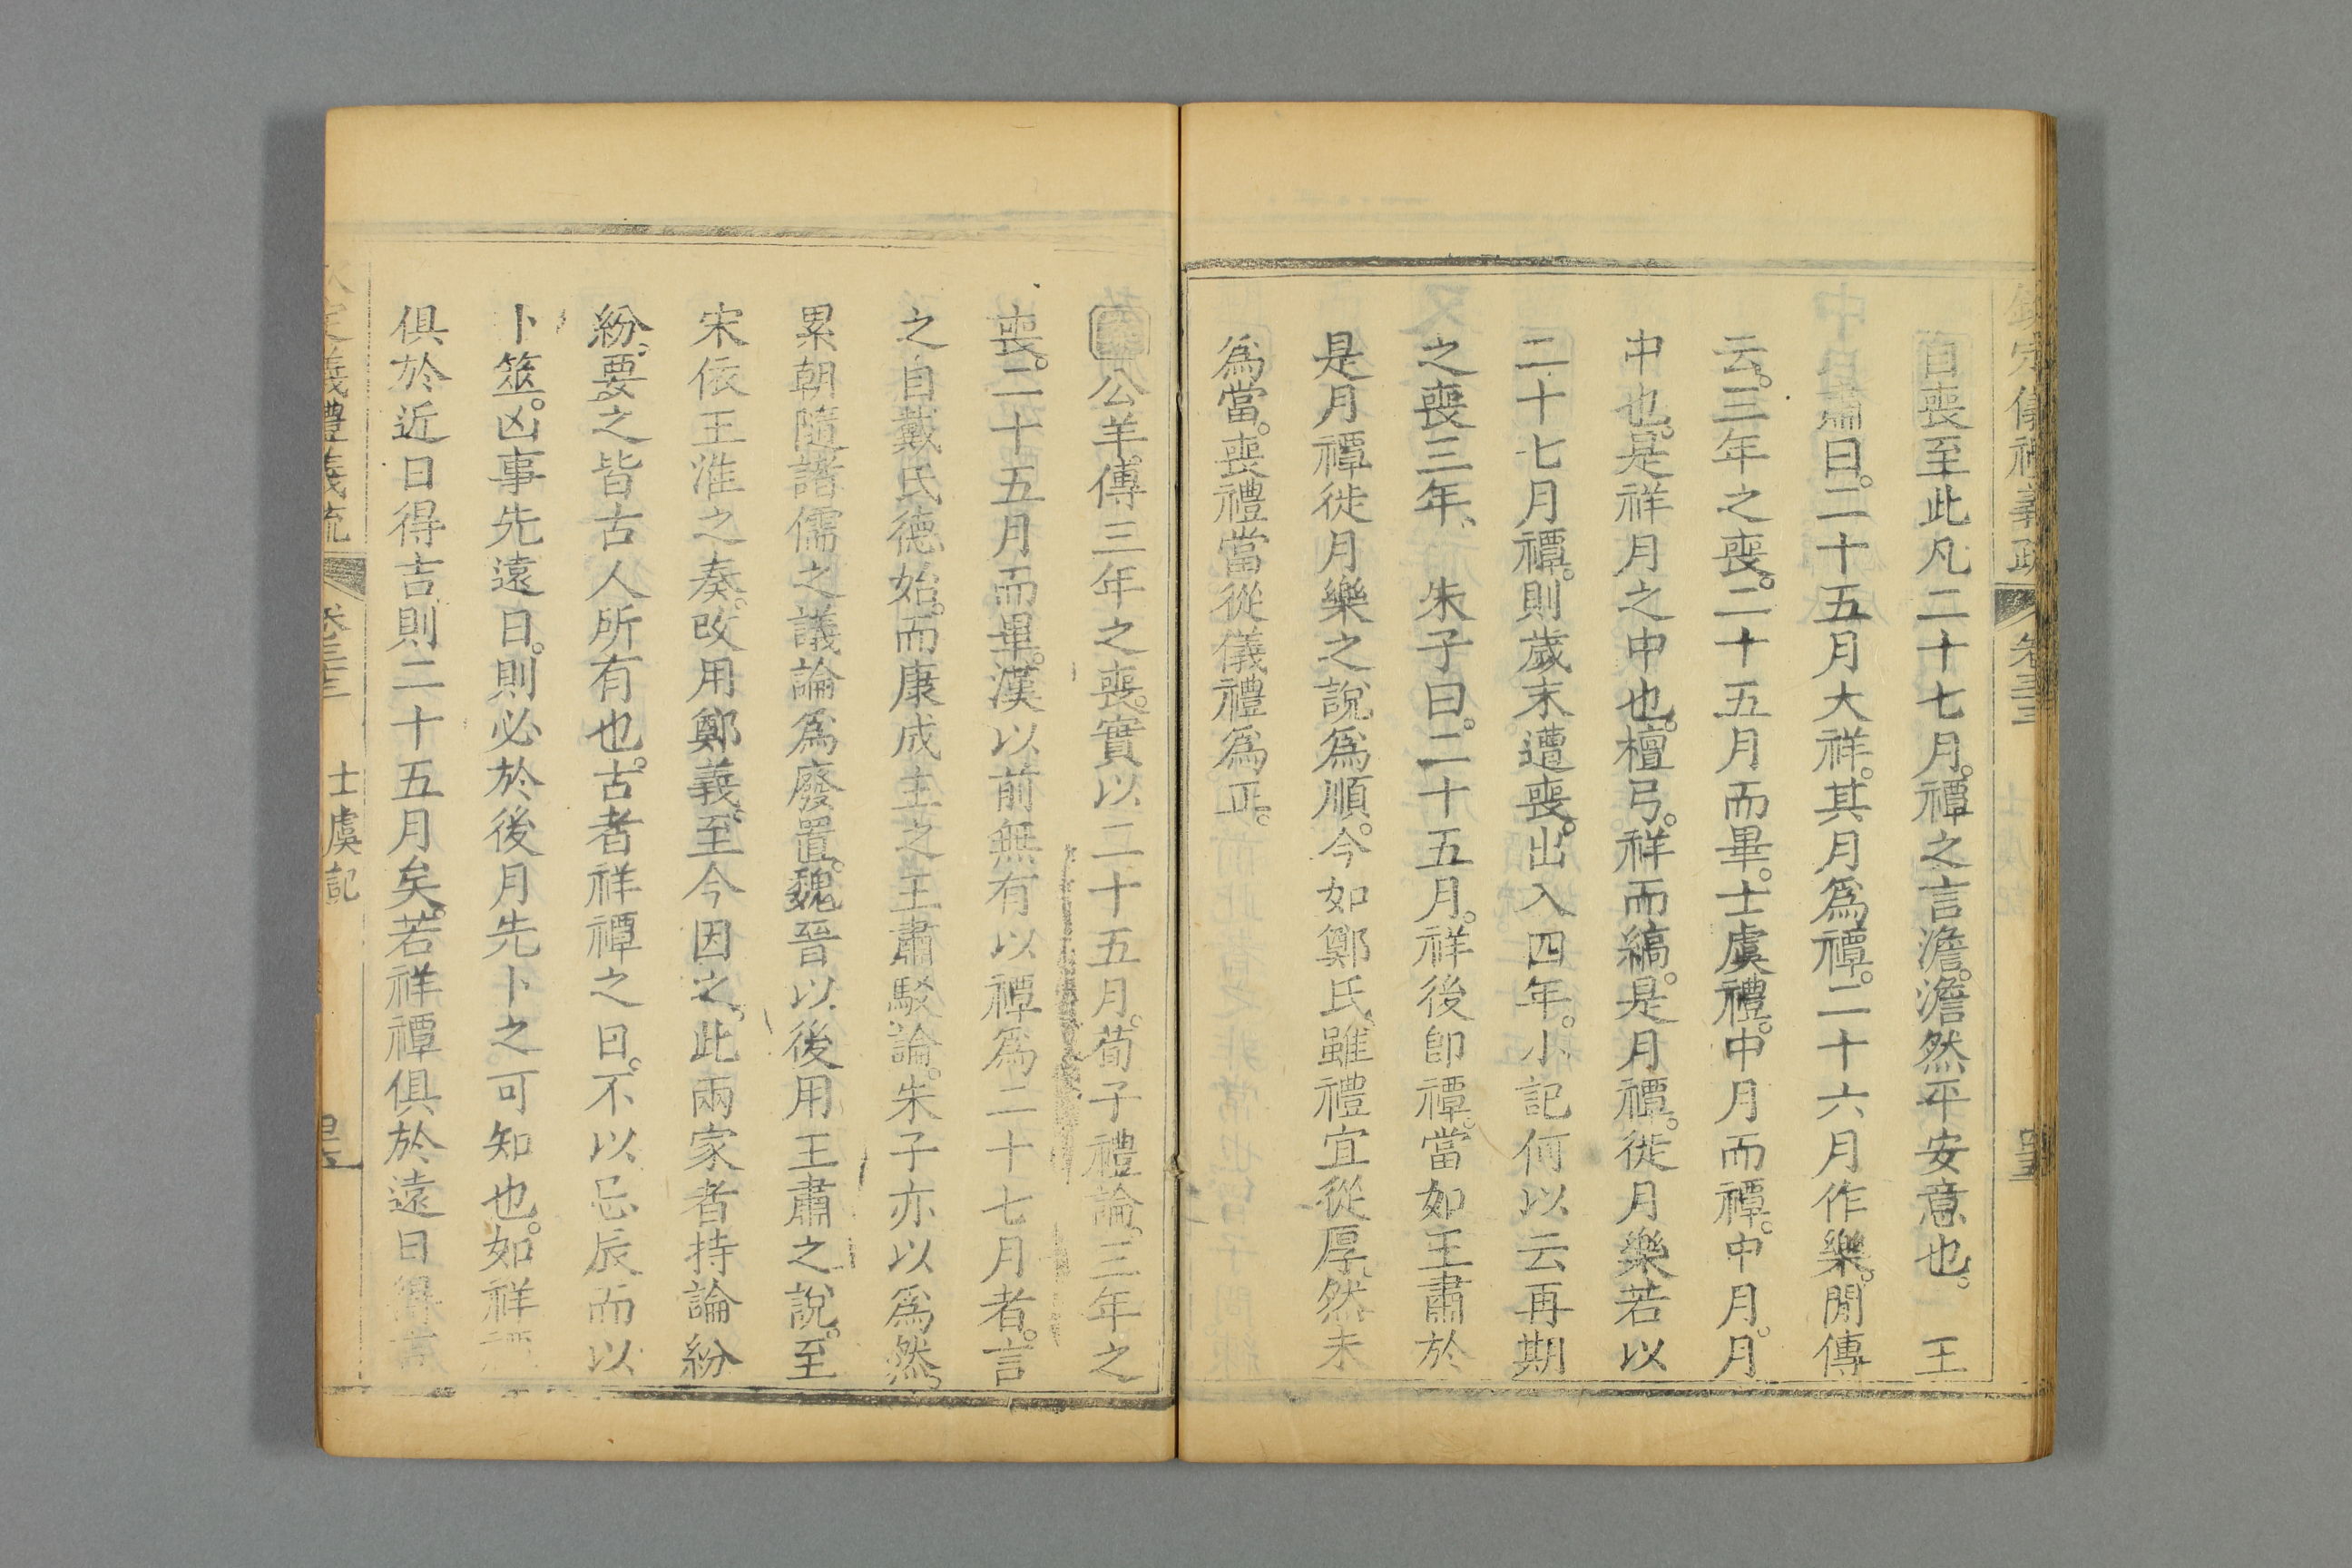 欽定儀禮義疏 卷三十三
自喪至此凡二十七月。禫之言澹。澹然平安意也。 王
肅曰。二十五月大祥。其月爲禫。二十六月作樂。閒傳
云。三年之喪。二十五月而畢。士虞禮。中月而禫。中月。月
中也。是祥月之中也。檀弓。祥而縞。是月禫。徙月樂若以
二十七月禫。則歲末遭喪。出入四年。小記何以云再期
之喪三年、 朱子曰。二十五月。祥後卽禫。當如王肅於
是月禫徙月樂之說爲順。今如鄭氏、雖禮宜從厚、然未
爲當。喪禮當從儀禮爲正。
公羊傳三年之喪。實以二十五月。荀子禮論。三年之
喪。二十五月而畢。漢以前無有以禫爲二十七月者。言
之自戴氏德始。而康成主之王肅駁論。朱子亦以爲然、
累朝隨諸儒之議論爲廢置。魏晉以後用王肅之說。至
宋依王淮之奏。改用鄭義、至今因之、此兩家者持論紛
紛、要之皆古人所有也。古者祥禫之日。不以忌辰而以
卜筮。凶事先遠日。則必於後月先卜之可知也。如祥禫
俱於近日得吉則二十五月矣。若祥禫俱於遠日得吉
欽定儀禮義疏 卷三十三 士虞記